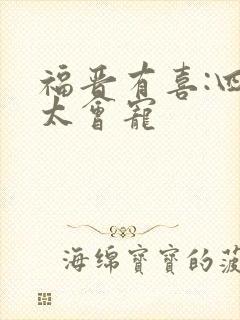 福晋有喜:四
太会宠
海绵宝宝的菠